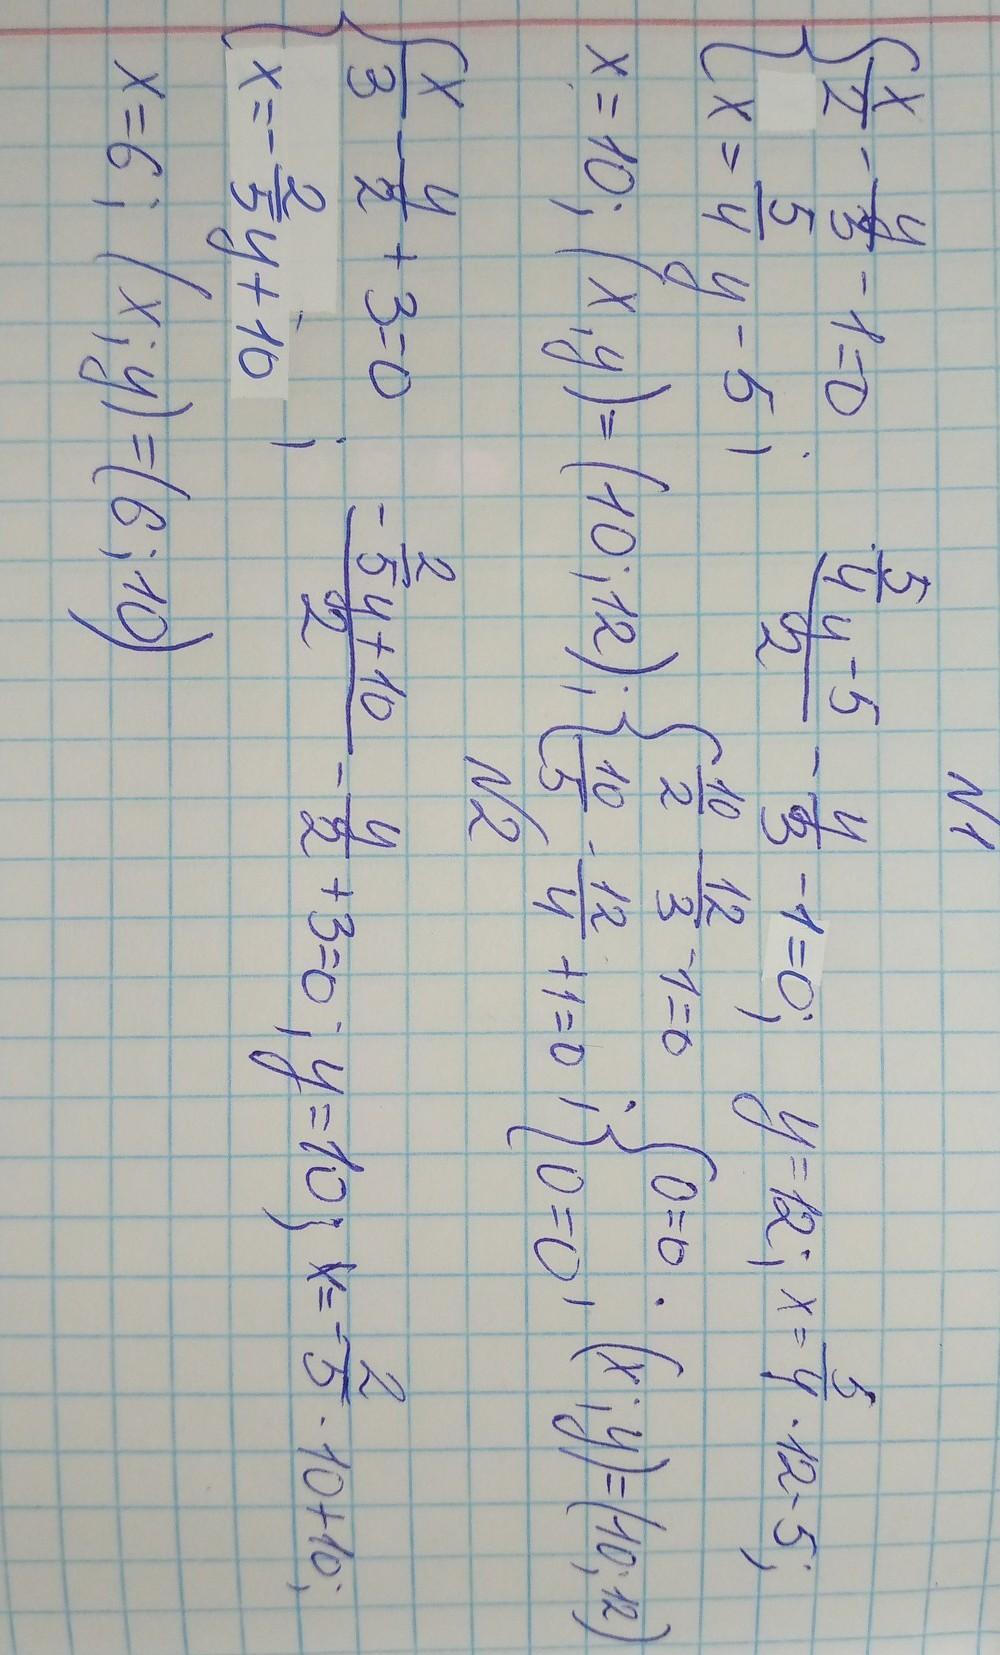 N1
{ x/2 - y/3 - 1 = 0
{ x = 5/4 y - 5 ; (5/4 y - 5)/2 - y/3 - 1 = 0; y = 12; x = 5/4 · 12 - 5;
x = 10; (x, y) = (10; 12); { 10/2 - 12/3 - 1 = 0 { 0 = 0
{ 10/5 - 12/4 + 1 = 0 ; { 0 = 0 , (x; y) = (10; 12)
N2
{ x/3 - y/2 + 3 = 0
{ x = - 2/5 y + 10 ; (- 2/5 y + 10)/2 - y/2 + 3 = 0; y = 10; x = - 2/5 · 10 + 10;
x = 6; (x; y) = (6; 10)